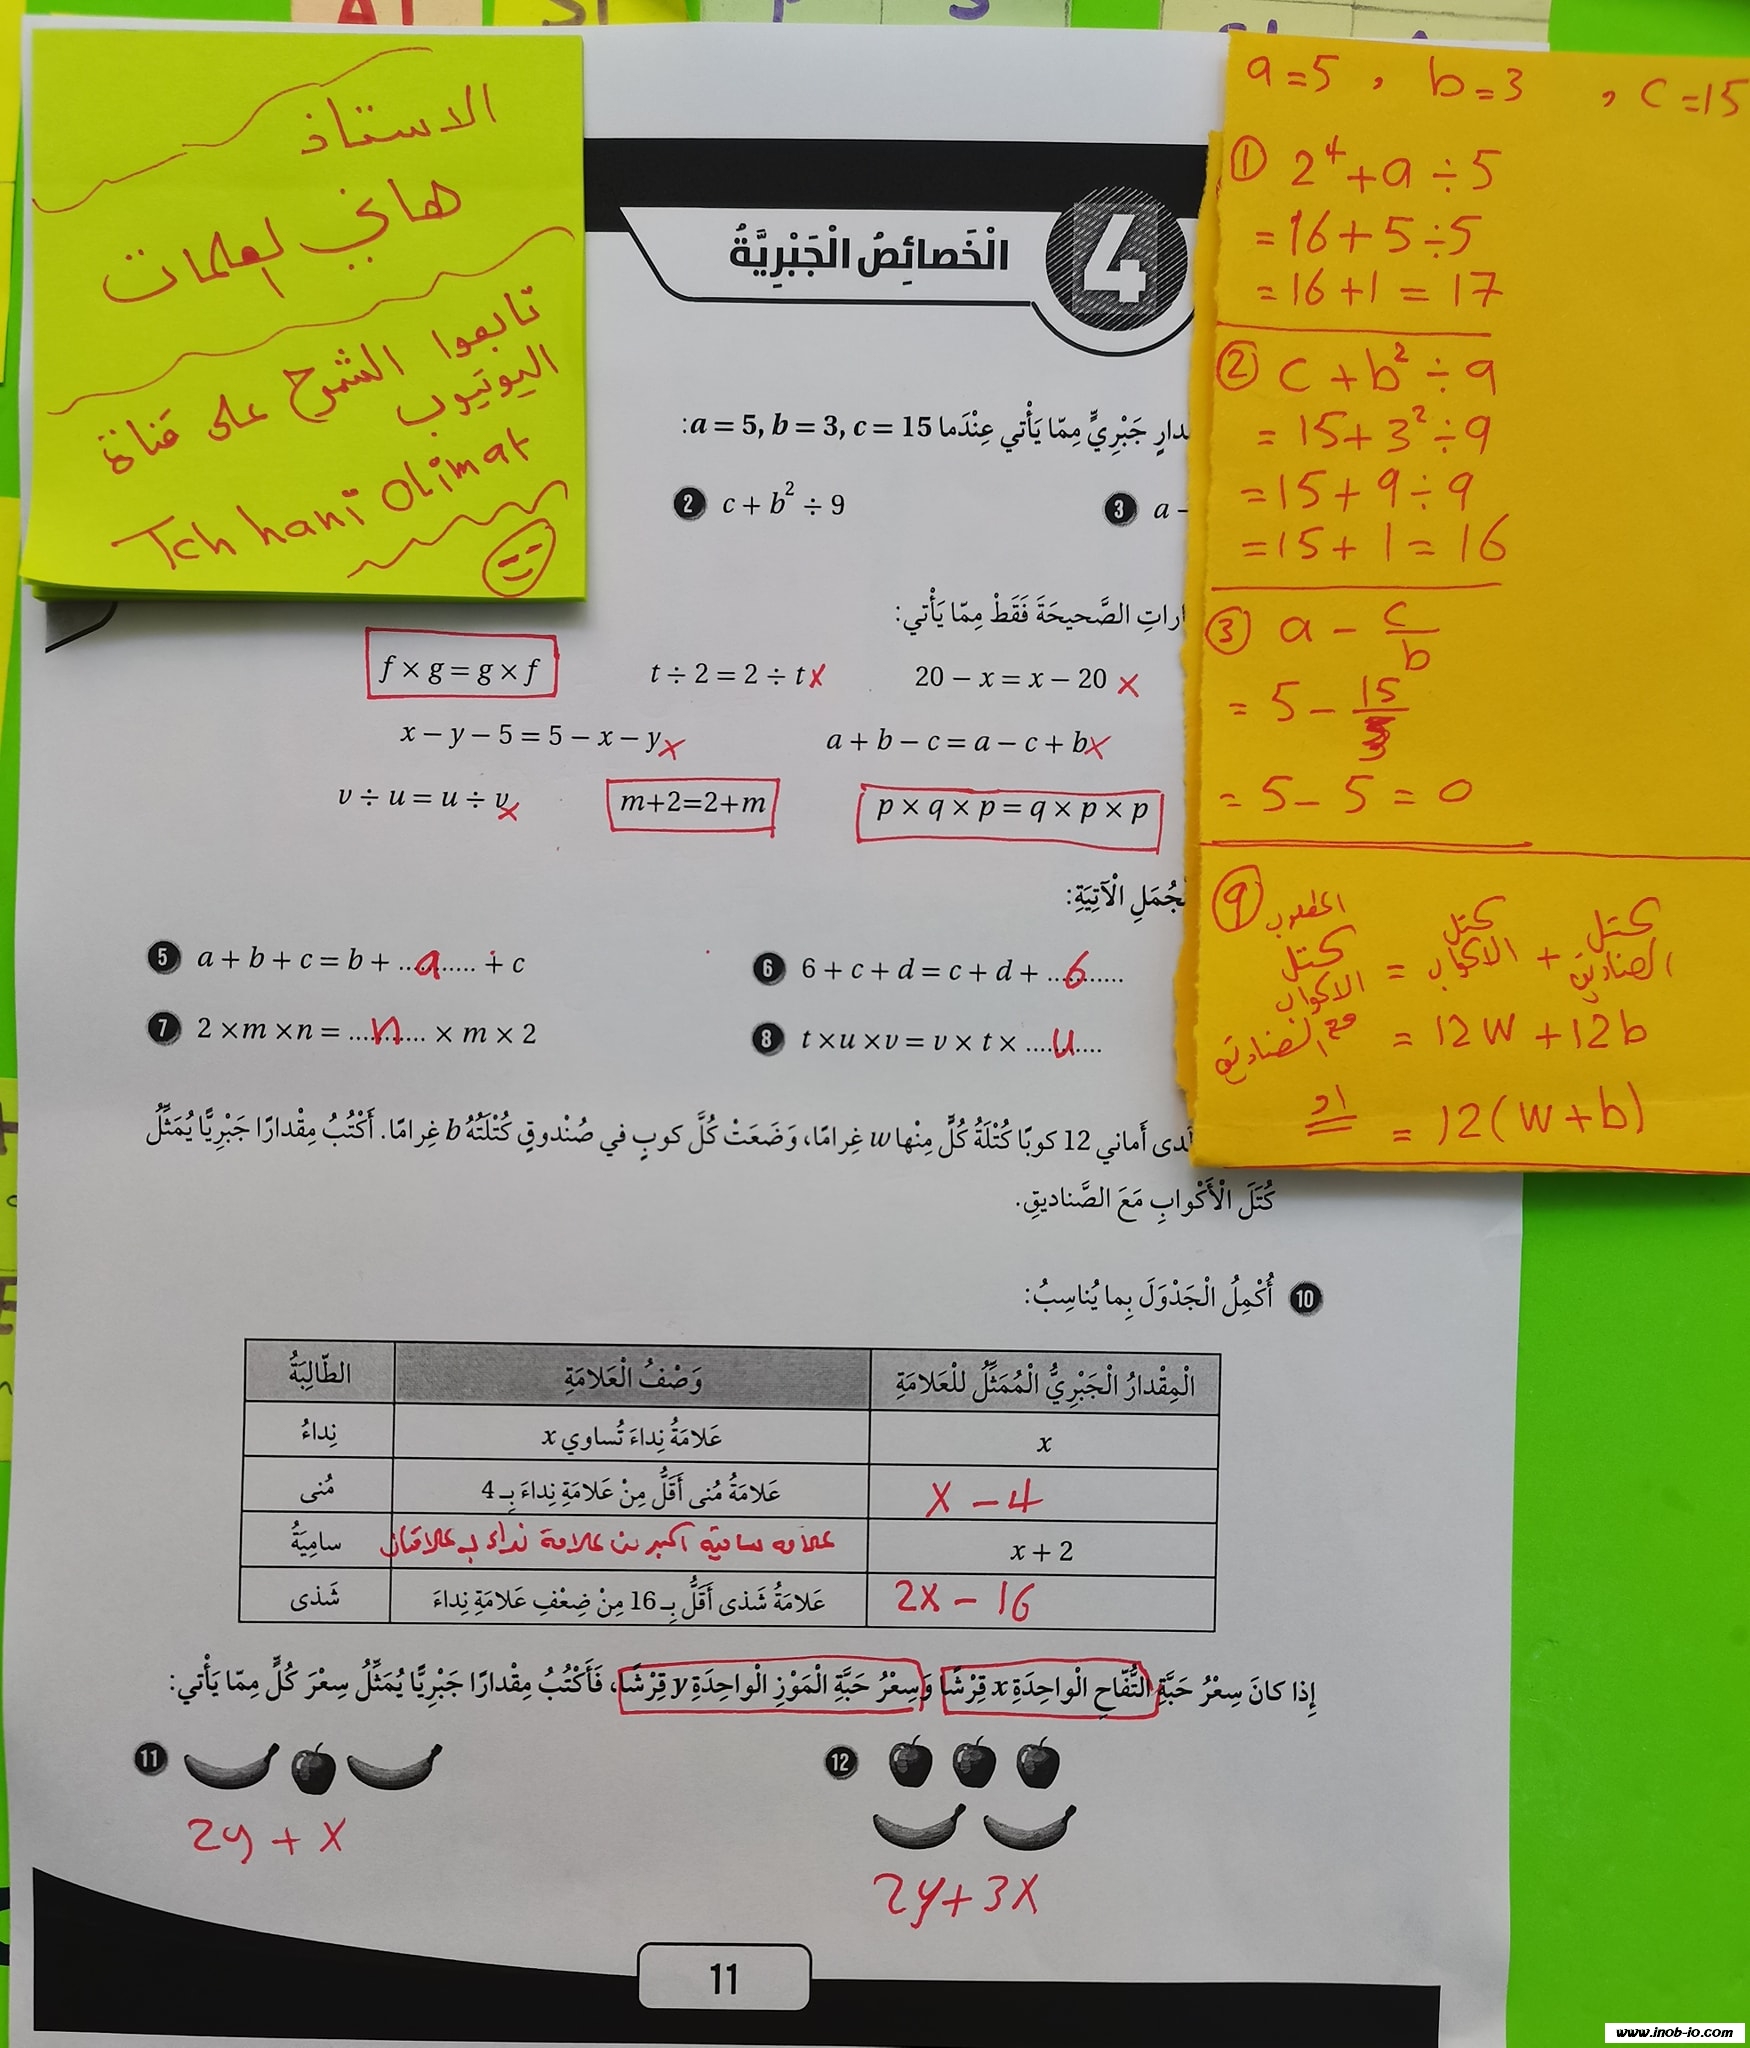 الاستاذ
هاني العلمات
تابعوا الشرح على قناة
اليوتيوب
Tch hani Olimat
4
الْخَصائِصُ الْجَبْرِيَّةُ
جَبْرِيٍّ مِمّا يَأْتي عِنْدَما a = 5, b = 3, c = 15:
2 c + b² ÷ 9
3 a −
الصَّحيحَةَ فَقَطْ مِمّا يَأْتي:
f × g = g × f
t ÷ 2 = 2 ÷ t x
20 − x = x − 20 x
x − y − 5 = 5 − x − y x
a + b − c = a − c + b x
v ÷ u = u ÷ v x
m+2=2+m
p × q × p = q × p × p
الْآتِيَةِ:
5 a + b + c = b + ....a.... + c
6 6 + c + d = c + d + ....6....
7 2 ×m ×n = ....n.... × m × 2
8 t ×u ×v = v × t × ....u....
أَماني 12 كوبًا كُتْلَةُ كُلٍّ مِنْها w غِرامًا، وَضَعَتْ كُلَّ كوبٍ في صُنْدوقٍ كُتْلَتُهُ b غِرامًا. أَكْتُبُ مِقْدارًا جَبْرِيًّا يُمَثِّلُ
كُتَلَ الْأَكْوابِ مَعَ الصَّناديقِ.
10 أُكْمِلُ الْجَدْوَلَ بِما يُناسِبُ:
الطّالِبَةُ وَصْفُ الْعَلامَةِ الْمِقْدارُ الْجَبْرِيُّ الْمُمَثِّلُ لِلْعَلامَةِ
نِداءُ عَلامَةُ نِداءَ تُساوي x x
مُنى عَلامَةُ مُنى أَقَلُّ مِنْ عَلامَةِ نِداءَ بِـ 4 x − 4
سامِيَةُ علامه سامية اكبر من علامة نداء بـ علامتان x + 2
شَذى عَلامَةُ شَذى أَقَلُّ بِـ 16 مِنْ ضِعْفِ عَلامَةِ نِداءَ 2x − 16
إِذا كانَ سِعْرُ حَبَّةِ التُّفّاحِ الْواحِدَةِ x قِرْشًا وَسِعْرُ حَبَّةِ الْمَوْزِ الْواحِدَةِ y قِرْشًا، فَأَكْتُبُ مِقْدارًا جَبْرِيًّا يُمَثِّلُ سِعْرَ كُلٍّ مِمّا يَأْتي:
11
2y + x
12
2y + 3x
11
a = 5 , b = 3 , c = 15
1 2⁴ + a ÷ 5
= 16 + 5 ÷ 5
= 16 + 1 = 17
2 c + b² ÷ 9
= 15 + 3² ÷ 9
= 15 + 9 ÷ 9
= 15 + 1 = 16
3 a − c/b
= 5 − 15/3
= 5 − 5 = 0
9 المطلوب
كتل الاكواب مع الصناديق = كتل الاكواب + كتل الصناديق
= 12w + 12b
او = 12(w + b)
www.inob-io.com